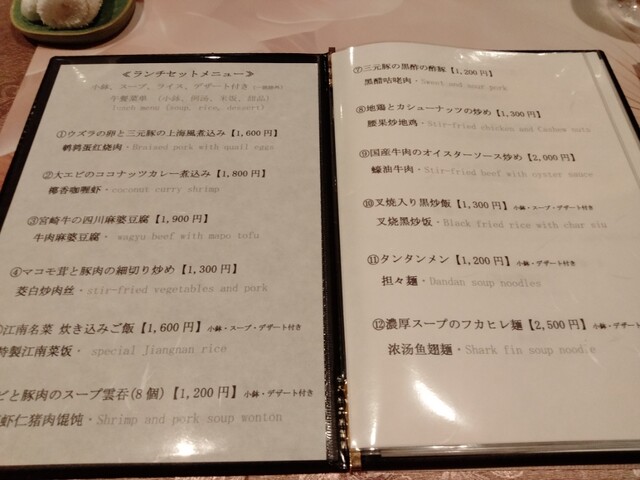 ≪ランチセットメニュー≫
小鉢、スープ、ライス、デザート付き
午餐菜単 (小鉢, 例汤, 米饭, 甜品)
lunch menu (soup, rice, dessert)
①ウズラの卵と三元豚の上海風煮込み【1,600円】
鹌鹑蛋红烧肉・Braised pork with quail eggs
②大エビのココナッツカレー煮込み【1,800円】
椰香咖喱虾・coconut curry shrimp
③宮崎牛の四川麻婆豆腐【1,900円】
牛肉麻婆豆腐・ wagyu beef with mapo tofu
④マコモ茸と豚肉の細切り炒め【1,300円】
茭白炒肉丝・stir-fried vegetables and pork
江南名菜 炊き込みご飯【1,600円】小鉢・スープ・デザート付き
特製江南菜饭・ special Jiangnan rice
ビと豚肉のスープ雲呑(8個)【1,200円】小鉢・デザート付き
虾仁猪肉馄饨・Shrimp and pork soup wonton
⑦三元豚の黒酢の酢豚【1,200円】
黑醋咕咾肉・Sweet and sour pork
⑧地鶏とカシューナッツの炒め【1,300円】
腰果炒地鸡・Stir-fried chicken and Cashew nuts
⑨国産牛肉のオイスターソース炒め【2,000円】
蠔油牛肉・Stir-fried beef with oyster sauce
⑩叉焼入り黒炒飯【1,300円】小鉢・スープ・デザート付き
叉烧黑炒饭・Black fried rice with char siu
⑪タンタンメン【1,200円】小鉢・デザート付き
担々麺・Dandan soup noodles
⑫濃厚スープのフカヒレ麺【2,500円】小鉢・デザート付き
浓汤鱼翅麺・Shark fin soup noodle